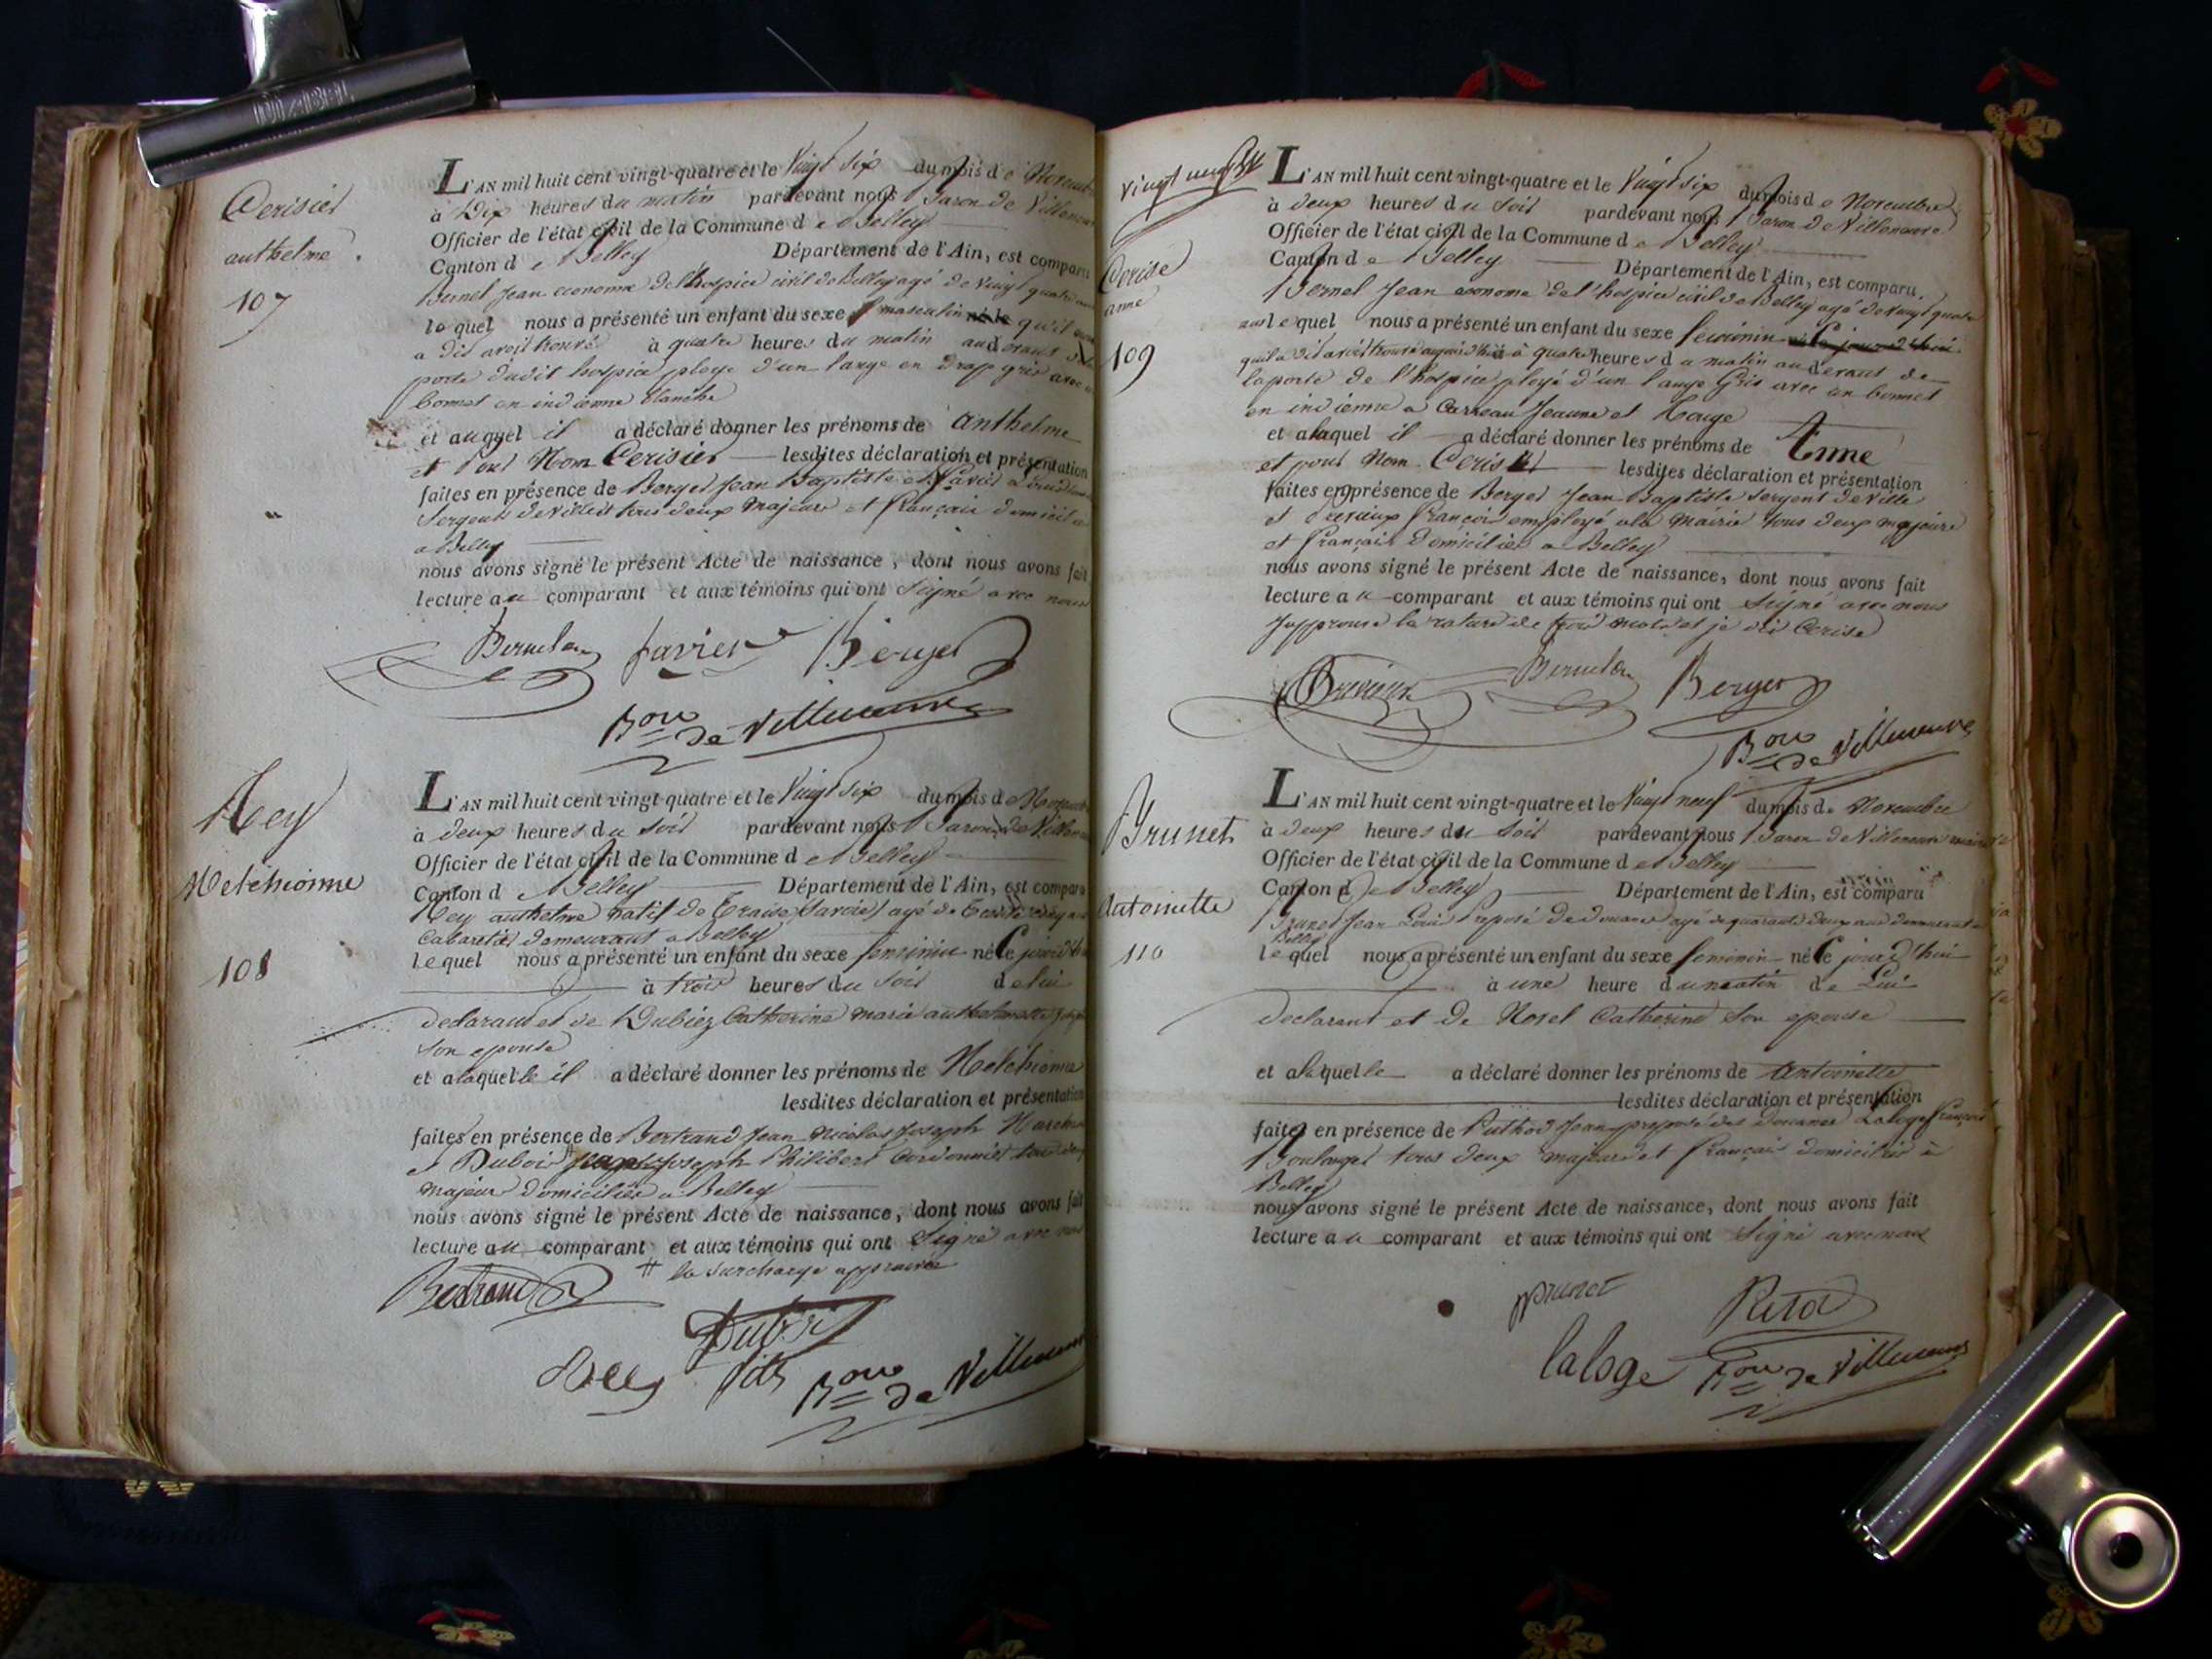 Cerisier
anthelme
107
L'AN mil huit cent vingt-quatre et le Vingt six du mois de Novemb
à Dix heures du matin pardevant nous Baron de Villeneuve
Officier de l'état civil de la Commune de Belley
Canton de Belley Département de l'Ain, est comparu
Bernel Jean econome de l'hospice civil de Belley agé de Vingt quatre
lequel nous a présenté un enfant du sexe masculin né le qu'il
a dit avoir trouvé à quatre heures du matin au devant de la
porte dudit hospice ployé d'un lange en drap gris avec un
bonnet en indienne blanche
et auquel il a déclaré donner les prénoms de anthelme
et pour Nom Cerisier lesdites déclaration et présentation
faites en présence de Berger Jean Baptiste et Favier
Sergents de Ville tous deux majeurs et français domiciliés
a Belley
nous avons signé le présent Acte de naissance, dont nous avons fait
lecture au comparant et aux témoins qui ont signé avec nous
favier Berger
Bon de Villeneuve
Rey
Melchionne
108
L'AN mil huit cent vingt-quatre et le Vingt six du mois de Novemb
à deux heures du soir pardevant nous Baron de Villeneuve
Officier de l'état civil de la Commune de Belley
Canton de Belley Département de l'Ain, est comparu
Rey anthelme natif de Traize (Savoie) agé de
Cabaretier demeurant a Belley
lequel nous a présenté un enfant du sexe feminin né Ce jourd'hui
à trois heures du soir de lui
declarant et de Dubiez Catherine marie anthelmette
son epouse
et a laquelle il a déclaré donner les prénoms de Melchionne
lesdites déclaration et présentation
faites en présence de Bertrand Jean Nicolas Joseph
et Dubois Joseph Philibert Cordonnier tous deux
majeurs domiciliés a Belley
nous avons signé le présent Acte de naissance, dont nous avons fait
lecture au comparant et aux témoins qui ont signé avec nous
# la surcharge approuvée
Bertrand
Dubois
Rey fils Bon de Villeneuve
Vingt neuf
Cerise
anne
109
L'AN mil huit cent vingt-quatre et le Vingt six du mois de Novembre
à deux heures du soir pardevant nous Baron de Villeneuve
Officier de l'état civil de la Commune de Belley
Canton de Belley Département de l'Ain, est comparu
Bernel Jean econome de l'hospice civil de Belley agé de vingt quatre
ans lequel nous a présenté un enfant du sexe feminin né Ce jourd'hui
qu'il a dit avoir trouvé aujourd'hui à quatre heures du matin au devant de
la porte de l'hospice ployé d'un lange Gris avec un bonnet
en indienne a Carreau Jeaune et Rouge
et a laquel il a déclaré donner les prénoms de Anne
et pour Nom Ceris lesdites déclaration et présentation
faites en présence de Berger Jean Baptiste sergent de Ville
et Brevieux françois employé a la Mairie tous deux majeurs
et français domiciliés a Belley
nous avons signé le présent Acte de naissance, dont nous avons fait
lecture au comparant et aux témoins qui ont signé avec nous
J'approuve la rature de trois mots et je dis Cerise
Berger
Bon de Villeneuve
Brunet
Antoinette
110
L'AN mil huit cent vingt-quatre et le Vingt neuf du mois de Novembre
à deux heures du soir pardevant nous Baron de Villeneuve maire
Officier de l'état civil de la Commune de Belley
Canton de Belley Département de l'Ain, est comparu
Brunet Jean Louis Preposé de douanes agé de quarante deux ans demeurant a
Belley
lequel nous a présenté un enfant du sexe feminin né Ce jourd'hui
à une heure du matin de Lui
declarant et de Morel Catherine son epouse
et a laquelle a déclaré donner les prénoms de Antoinette
lesdites déclaration et présentation
faites en présence de Puthod Jean preposé des Douanes Laloge françois
Boulanger tous deux majeurs et français domiciliés à
Belley
nous avons signé le présent Acte de naissance, dont nous avons fait
lecture au comparant et aux témoins qui ont signé avec nous
Brunet
laloge Bon de Villeneuve